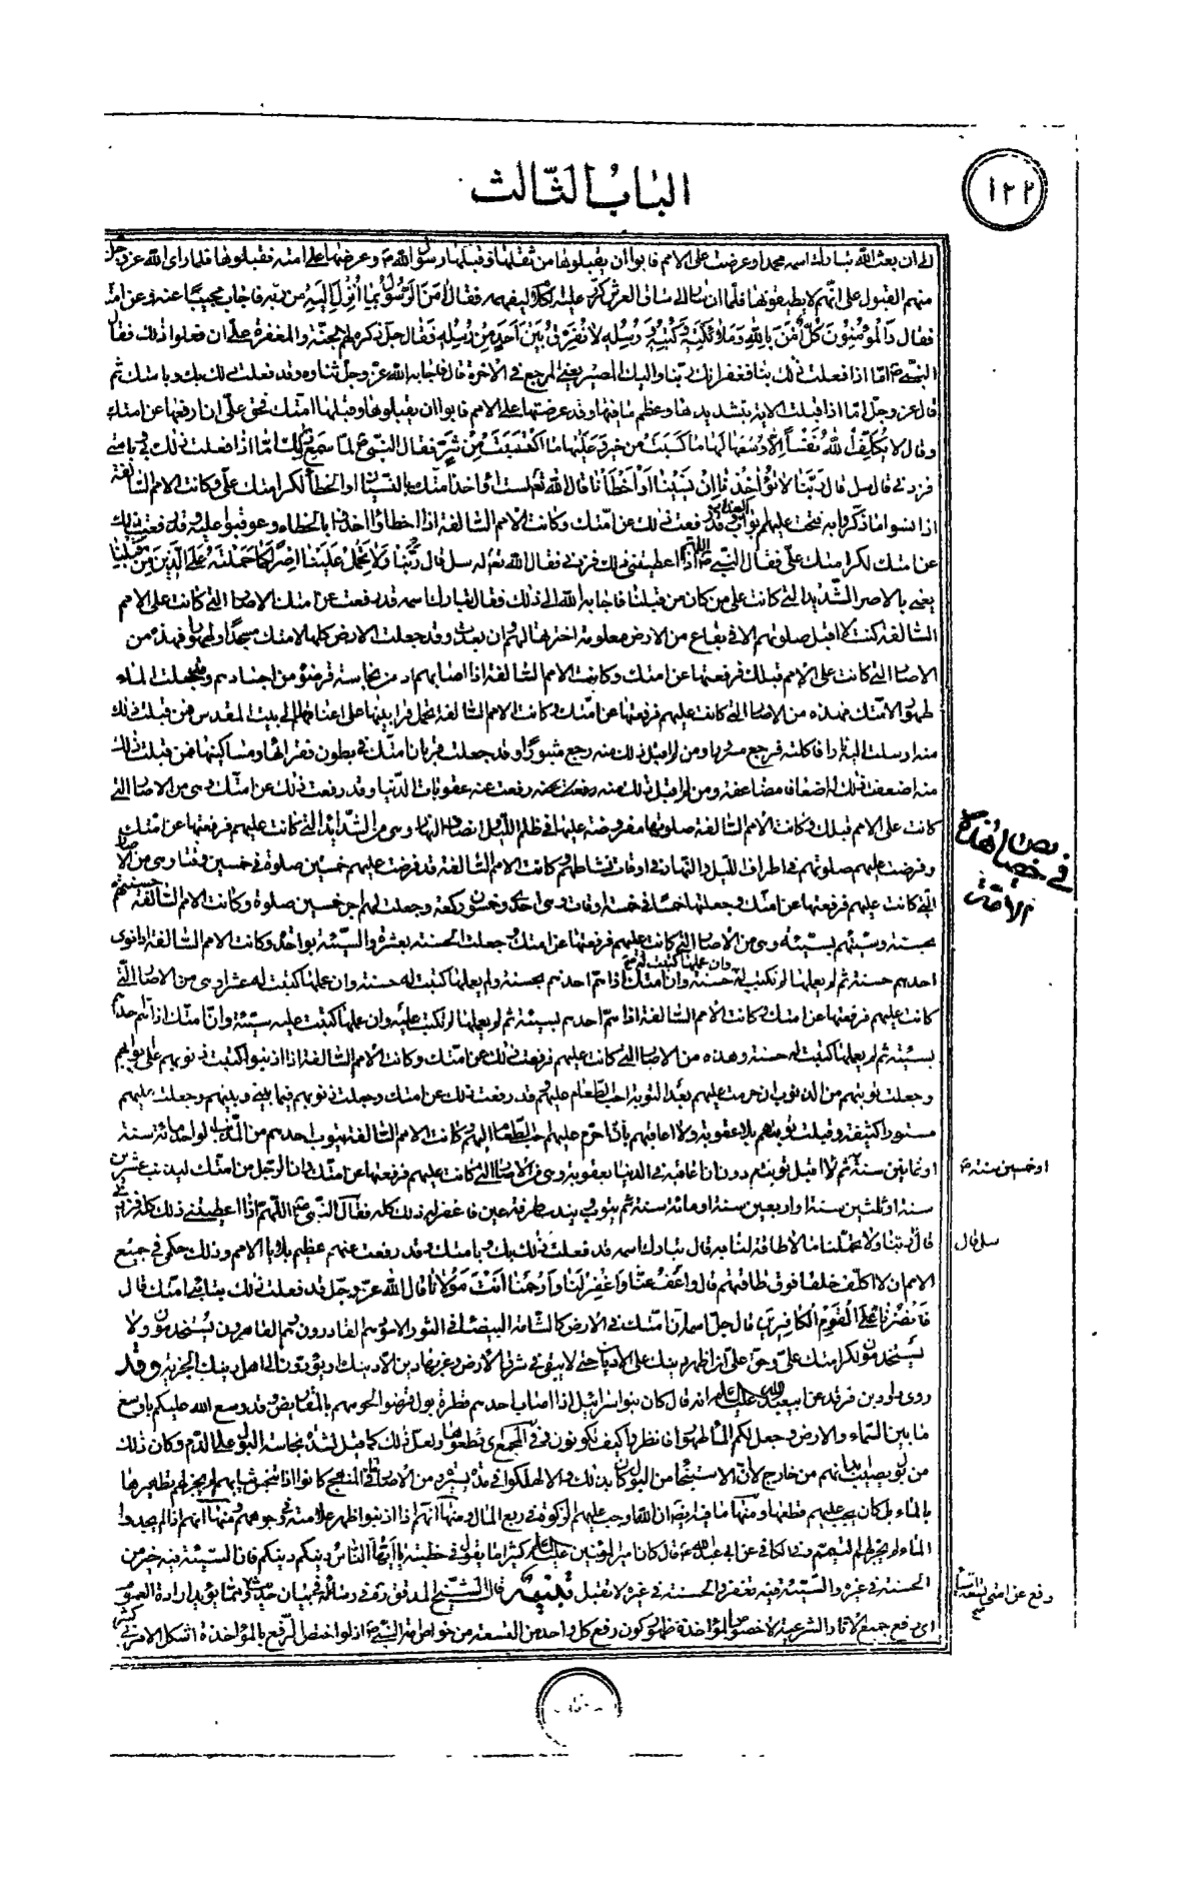 ١٢٢
الباب الثالث
الى ان بعث الله تبارك اسمه محمدا وعرضت على الامم فابوا ان يقبلوها من ثقلها وقبلها رسول الله ص وعرضها على امته فقبلوها فلما راى الله عز وجل
منهم القبول على انهم لا يطيقونها فلما ان سار الى ساق العرش كرر عليه الكلام ليفهمه فقال آمَنَ الرَّسُولُ بِمَا اُنْزِلَ اِلَيْهِ مِنْ رَبِّهِ فاجاب مجيبا عنه وعن امته
فقال وَالْمُؤْمِنُونَ كُلٌّ آمَنَ بِاللّٰهِ وَمَلَائِكَتِهِ وَكُتُبِهِ وَرُسُلِهِ لَا نُفَرِّقُ بَيْنَ اَحَدٍ مِنْ رُسُلِهِ فقال جل ذكره لهم الجنة والمغفرة على ان فعلوا ذلك فقال
النبي ص اما اذا فعلت ذلك بنا فغفرانك ربنا واليك المصير يعني المرجع في الاخرة قال فاجابه الله عز وجل ثناؤه وقد فعلت ذلك بك وبامتك ثم
قال عز وجل اما اذا قبلت الاية بتشديدها وعظم ما فيها وقد عرضتها على الامم فابوا ان يقبلوها وقبلها امتك فحق على ان ارفعها عن امتك
وقال لَا يُكَلِّفُ اللّٰهُ نَفْساً اِلَّا وُسْعَهَا لَهَا مَا كَسَبَتْ من خير وَعَلَيْهَا مَا اكْتَسَبَتْ من شر فقال النبي ص لما سمع ذلك اما اذا فعلت ذلك بي وبامتي
فزدني قال سل قال رَبَّنَا لَا تُؤَاخِذْنَا اِنْ نَسِينَا اَوْ اَخْطَأْنَا قال الله تعالى لست اؤاخذ امتك بالنسيان او الخطأ لكرامتك علي وكانت الامم السالفة
اذا نسوا ما ذكروا به فتحت عليهم ابواب العذاب وقد رفعت ذلك عن امتك وكانت الامم السالفة اذا اخطاؤا اخذوا بالخطاء وعوقبوا عليه وقد رفعت ذلك
عن امتك لكرامتك علي فقال النبي ص اللهم اذا اعطيتني ذلك فزدني فقال الله تعالى له سل قال رَبَّنَا وَلَا تَحْمِلْ عَلَيْنَا اِصْراً كَمَا حَمَلْتَهُ عَلَى الَّذِينَ مِنْ قَبْلِنَا
يعني بالاصر الشدايد التي كانت على من كان من قبلنا فاجابه الله الى ذلك فقال تبارك اسمه قد رفعت عن امتك الاصار التي كانت على الامم
السالفة كنت لا اقبل صلوتهم الا في بقاع من الارض معلومة اخترتها لهم وان بعدت وقد جعلت الارض كلها لامتك مسجدا وطهورا فهذه من
الاصار التي كانت على الامم قبلك فرفعتها عن امتك وكانت الامم السالفة اذا اصابهم اذى من نجاسة قرضوه من اجسادهم وقد جعلت الماء
طهورا لامتك فهذه من الاصار التي كانت عليهم فرفعتها عن امتك وكانت الامم السالفة تحمل قرابينها على اعناقها الى بيت المقدس فمن قبلت ذلك
منه ارسلت اليه نارا فاكلته فرجع مسرورا ومن لم اقبل ذلك منه رجع مثبورا وقد جعلت قربان امتك في بطون فقرائها ومساكينها فمن قبلت ذلك
منه اضعفت ذلك له اضعافا مضاعفة ومن لم اقبل ذلك منه رفعت عنه عقوبات الدنيا وقد رفعت ذلك عن امتك وهي من الاصار التي
كانت على الامم قبلك وكانت الامم السالفة صلوتها مفروضة عليها في ظلم الليل وانصاف النهار وهي من الشدايد التي كانت عليهم فرفعتها عن امتك
وفرضت عليهم صلوتهم في اطراف الليل والنهار في اوقات نشاطهم وكانت الامم السالفة قد فرضت عليهم خمسين صلوة في خمسين وقتا وهي من الاصار
التي كانت عليهم فرفعتها عن امتك وجعلتها خمسا في خمسة اوقات وهي احدى وخمسون ركعة وجعلت لهم اجر خمسين صلوة وكانت الامم السالفة حسنتهم
بحسنة وسيئتهم بسيئة وهي من الاصار التي كانت عليهم فرفعتها عن امتك وجعلت الحسنة بعشرة والسيئة بواحدة وكانت الامم السالفة اذا نوى
احدهم حسنة ثم لم يعملها لم تكتب له وان عملها كتبت له حسنة وان امتك اذا هم احدهم بحسنة ولم يعملها كتبت له حسنة وان عملها كتبت له عشرا وهي من الاصار التي
كانت عليهم فرفعتها عن امتك وكانت الامم السالفة اذا هم احدهم بسيئة ثم لم يعملها لم تكتب عليه وان عملها كتبت عليه سيئة وان امتك اذا هم احدهم
بسيئة ثم لم يعملها كتبت له حسنة وهذه من الاصار التي كانت عليهم فرفعت ذلك عن امتك وكانت الامم السالفة اذا اذنبوا كتبت ذنوبهم على ابوابهم
وجعلت توبتهم من الذنوب ان حرمت عليهم بعد التوبة احب الطعام عليهم وقد رفعت ذلك عن امتك وجعلت ذنوبهم فيما بيني وبينهم وجعلت عليهم
ستورا كثيفة وقبلت توبتهم بلا عقوبة ولا اعاقبهم بان احرم عليهم احب الطعام اليهم وكانت الامم السالفة يتوب احدهم من الذنب الواحد مائة سنة
او ثمانين سنة ثم لا اقبل توبته دون ان اعاقبه في الدنيا بعقوبة وهي من الاصار التي كانت عليهم فرفعتها عن امتك وان الرجل من امتك ليذنب عشرين
سنة او ثلثين سنة او اربعين سنة او مائة سنة ثم يتوب ويندم طرفة عين فاغفر له ذلك كله فقال النبي ص اللهم اذا اعطيتني ذلك كله فزدني
قال ربنا ولا تحملنا ما لا طاقة لنا به قال تبارك اسمه قد فعلت ذلك بك وبامتك وقد رفعت عنهم عظيم بلايا الامم وذلك حكمي في جميع
الامم ان لا اكلف خلقا فوق طاقتهم قال وَاعْفُ عَنَّا وَاغْفِرْ لَنَا وَارْحَمْنَا اَنْتَ مَوْلَانَا قال الله عز وجل قد فعلت ذلك بتائبي امتك قال
فَانْصُرْنَا عَلَى الْقَوْمِ الْكَافِرِينَ قال جل اسمه ان امتك في الارض كالشامة البيضاء في الثور الاسود هم القادرون وهم القاهرون يستخدمون ولا
يستخدمون لكرامتك علي وحق على ان اظهر دينك على الاديان حتى لا يبقى في شرق الارض وغربها دين الا دينك او يؤدون الى اهل دينك الجزية وقد
روى داود بن فرقد عن ابيعبد الله عليه السلم انه قال كان بنو اسرائيل اذا اصاب احدهم قطرة بول قرضوا لحومهم بالمقاريض وقد وسع الله عليكم باوسع
ما بين السماء والارض وجعل لكم الماء طهورا فانظروا كيف تكونون
من ان يصيب ابدانهم من خارج لان الاستنجاء من البول كان بذلك والا لهلكوا في مدة يسيرة
بالماء بل كان يجب عليهم قطعها ومنها ان الله اوجب عليهم الزكوة في ربع المال ومنها انهم اذا اذنبوا ظهر علامته في وجوههم ومنها انهم اذا لم يجدوا
الماء لم يجز لهم التيمم وفي الكافي عن ابي عبد الله ع قال كان امير المؤمنين عليه السلم كثيرا ما يقول في خطبته يا ايها الناس دينكم دينكم فان السيئة فيه خير من
الحسنة في غيره والسيئة فيه تغفر والحسنة في غيره لا تقبل تنبيه قال الشيخ المدقق ره في رسالة في بيان حديث ومما يؤيد ارادة العموم
اى رفع جميع الاثار الشرعية لا خصوص المؤاخذة ظهور كون رفع كل واحد من التسعة من خواص امة النبي ص اذ لو اختص الرفع بالمؤاخذة اشكل الامر في كثير
في خصائص هذه الامة
او خمسين سنة
سل قال
رفع عن امتي تسعة اشياء